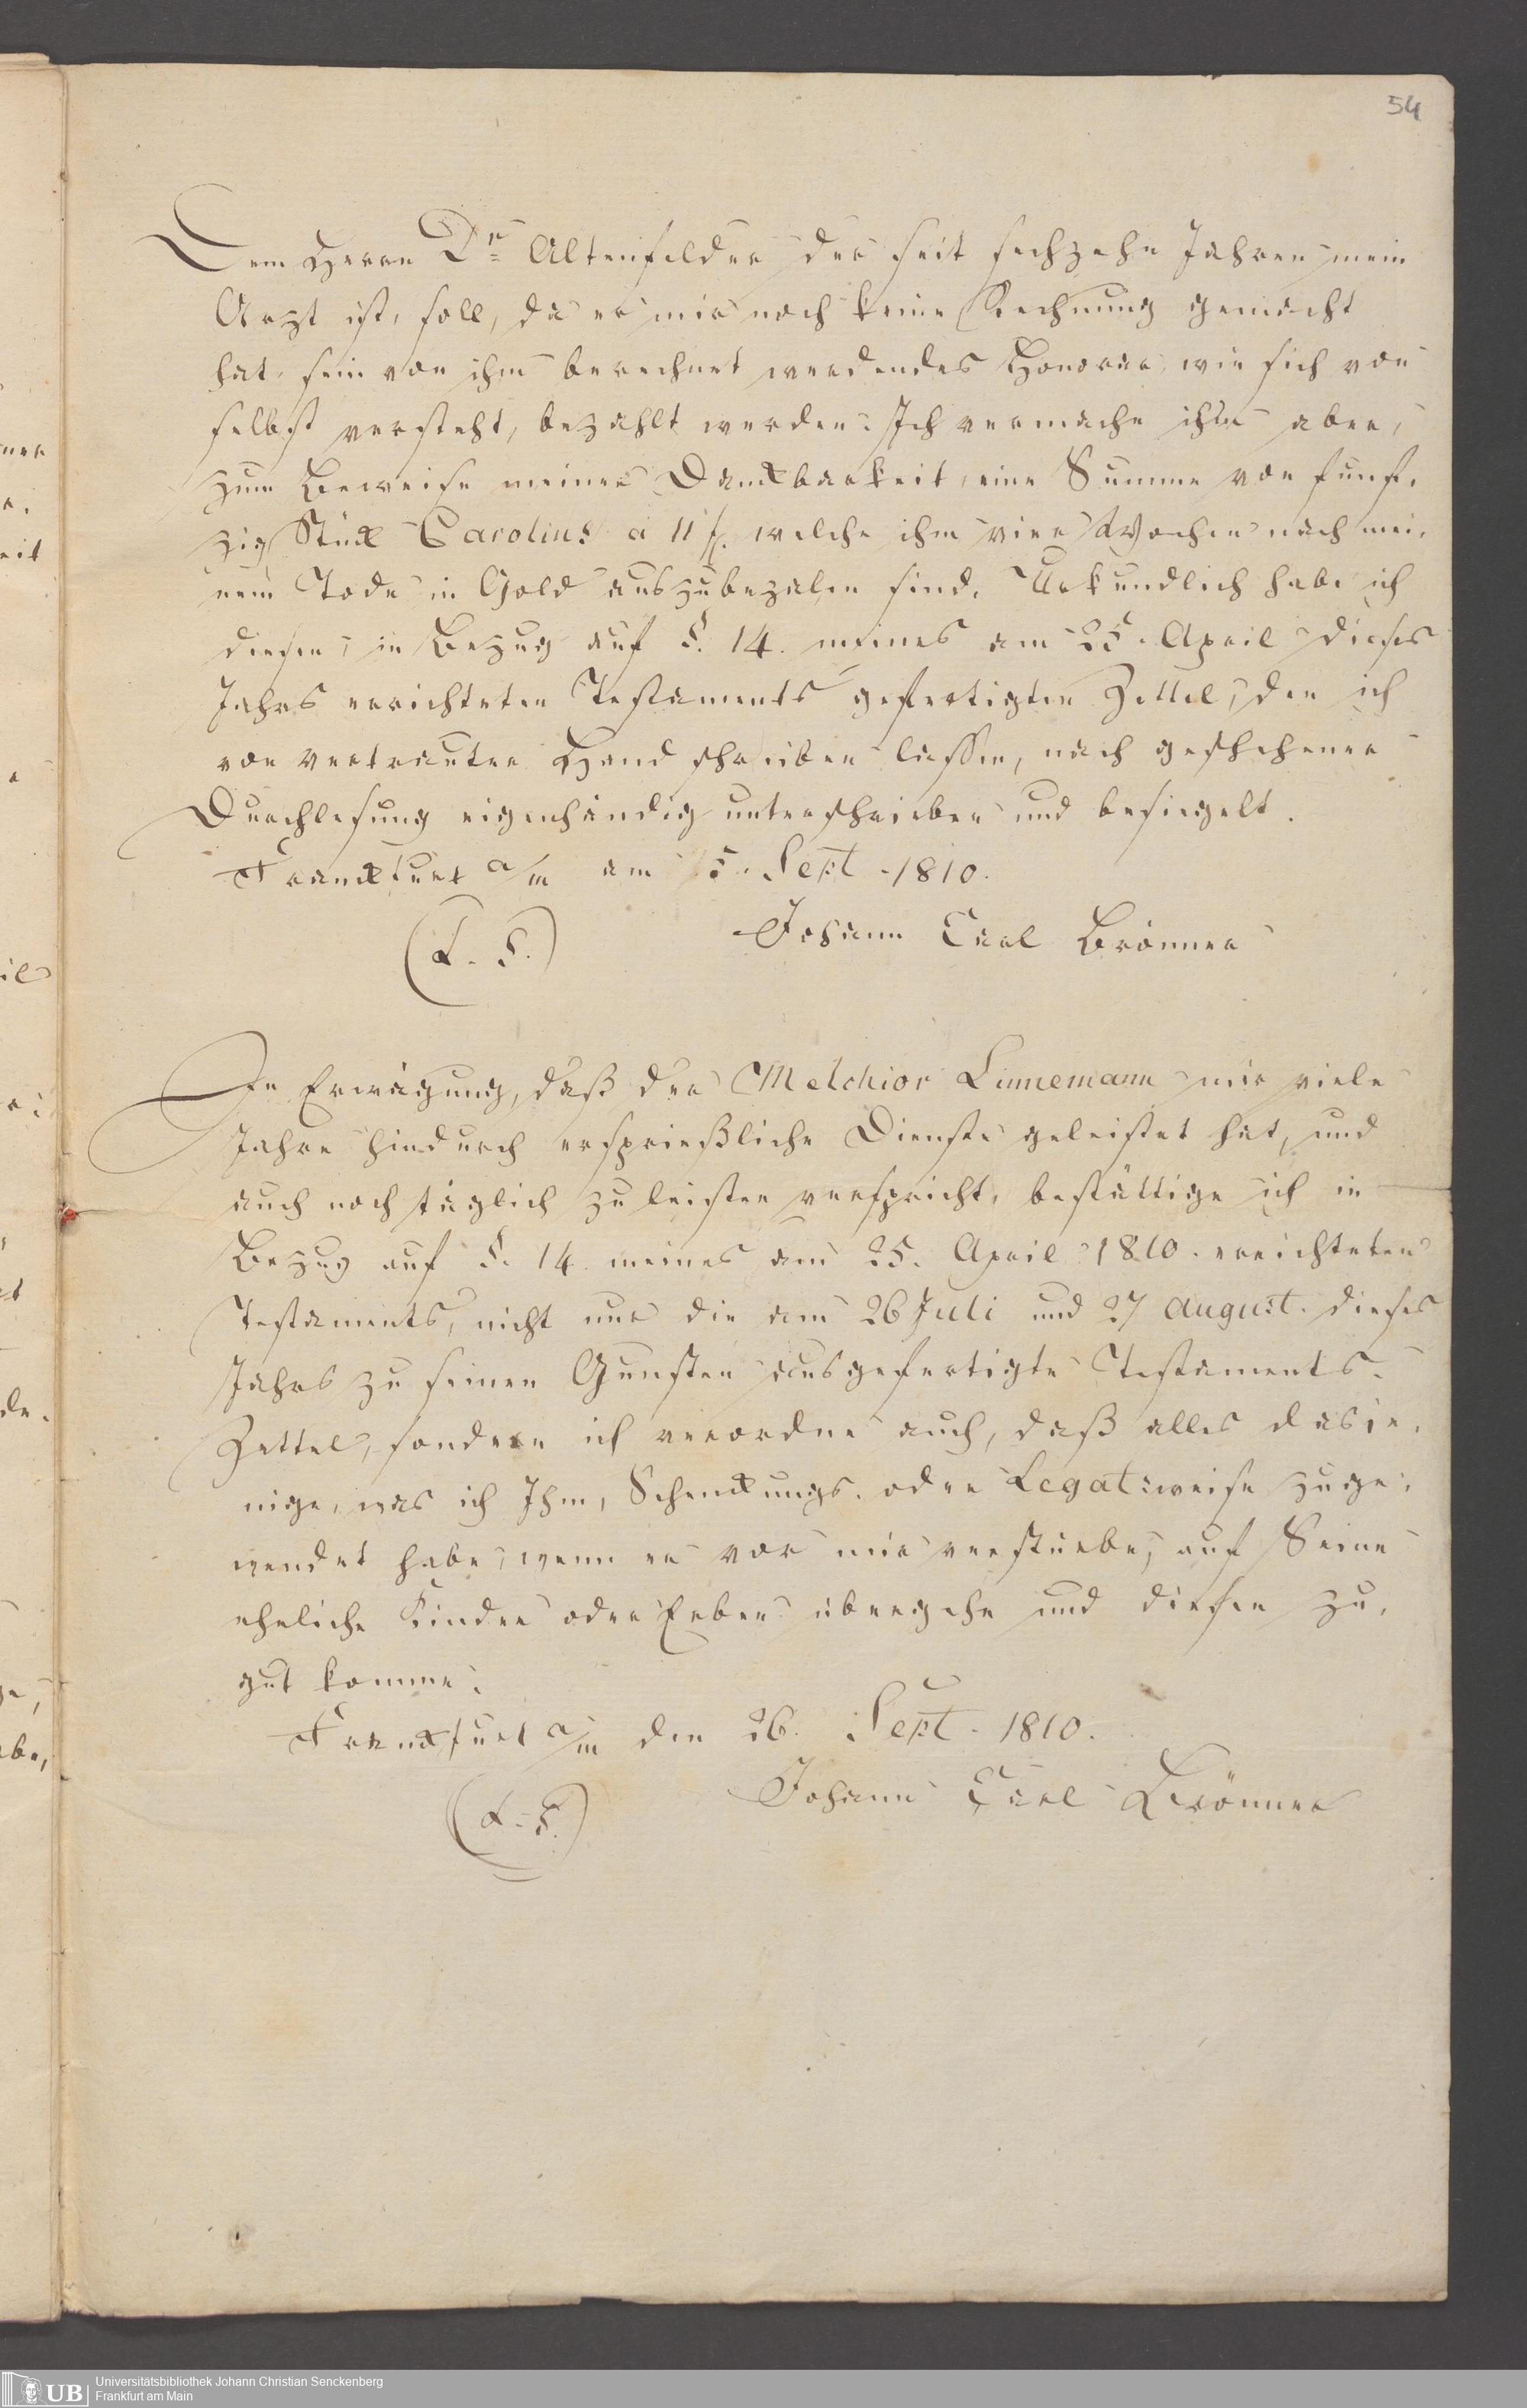 54
Dem Herrn Dr. Altenfelder der seit sechzehn Jahren mein
Arzt ist, soll, da er mir noch keine Rechnung gemacht
hat, sein von ihm berechnet werdendes Honorar, wie sich von
selbst versteht, bezahlt werden. Ich vermache ihm aber,
zum Beweise meiner Dankbarkeit, eine Summe von funf-
zig Stück Carolins à 11 f. welche ihm vier Wochen nach mei-
nem Tode in Gold auszubezalen sind. Urkundlich habe ich
diesen, in Bezug auf §. 14. meines am 25. April dieses
Jahrs errichteten Testaments gefertigten Zettel, den ich
von vertrauter Hand schreiben lassen, nach geschehener
Durchlesung eigenhändig unterschrieben und besiegelt.
Franckfurt a/m am 5. Sept. 1810.
(L. S.) Johann Carl Brönner
In Erwägung, daß der Melchior Linnemann mir viele
Jahre hindurch ersprießliche Dienste geleistet hat, und
auch noch täglich zu leisten verspricht, bestättige ich in
Bezug auf §. 14 meines am 25. April 1810. errichteten
Testaments, nicht nur die am 26 Juli und 27 August. dieses
Jahrs zu seinen Gunsten ausgefertigte Testaments-
Zettel, sondern ich verordne auch, daß alles dasje-
nige, was ich Ihm, Schenckungs- oder Legatsweise zuge-
wendet habe, wenn er vor mir verstürbe, auf Seine
eheliche Kinder oder Erben übergehe und diesen zu-
gut komme.
Franckfurt a/m den 26. Sept. 1810.
(L. S.) Johann Carl Brönner
UB Universitätsbibliothek Johann Christian Senckenberg
Frankfurt am Main